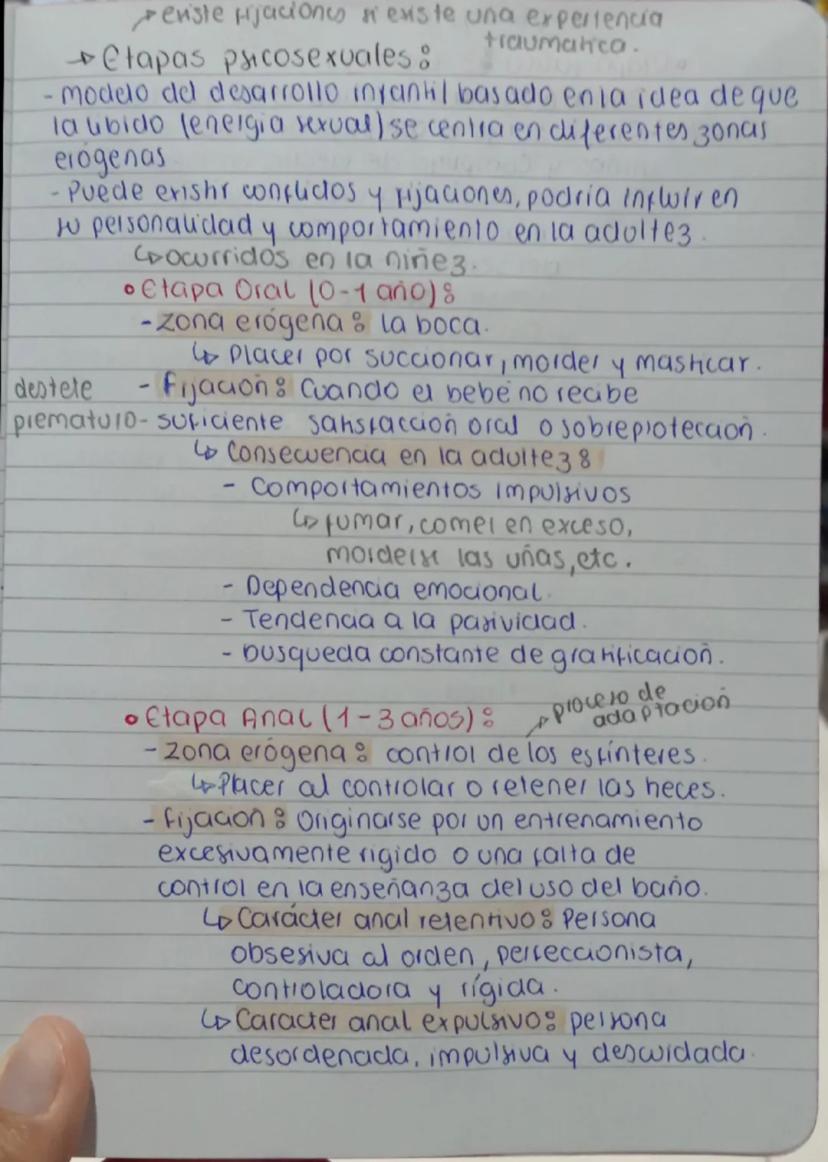 → existe fijaciones si existe una experiencia
traumatica.
→ Etapas psicosexuales:
- modelo del desarrollo infantil basado en la idea de que
la libido (energia sexual) se centra en diferentes zonas
erógenas
- Puede existir conflictos y fijaciones, podria influir en
su personalidad y comportamiento en la adultez.
↳ ocurridos en la niñez.
• Etapa Oral (0-1 año):
- zona erógena: la boca.
↳ Placer por succionar, morder y masticar.
destete - fijación: Cuando el bebé no recibe
prematuro - suficiente satisfacción oral o sobreprotección.
↳ Consecuencia en la adultez:
- Comportamientos impulsivos
↳ fumar, comer en exceso,
morderse las uñas, etc.
- Dependencia emocional.
- Tendencia a la pasividad.
- busqueda constante de gratificación.
• Etapa Anal (1-3 años): → proceso de
adaptación
- zona erógena: control de los esfínteres.
↳ Placer al controlar o retener las heces.
- fijación: Originarse por un entrenamiento
excesivamente rigido o una falta de
control en la enseñanza del uso del baño.
↳ Carácter anal retentivo: Persona
obsesiva al orden, perfeccionista,
controladora y rígida.
↳ Caracter anal expulsivo: persona
desordenada, impulsiva y descuidada.